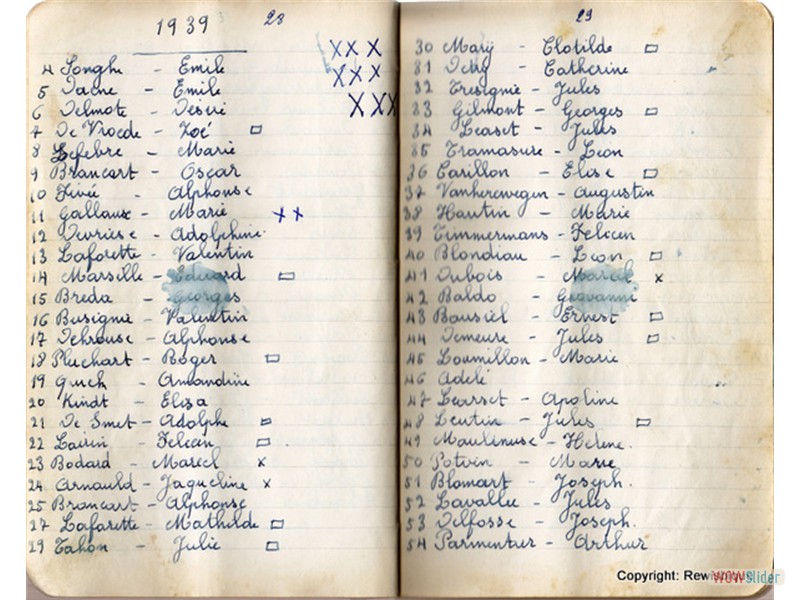 1939 28
4 Songhe - Emile
5 Daene - Emile
6 Delmote - Désiré
7 De Vroede - Zoé
8 Lefebre - Marie
9 Brancart - Oscar
10 Fivée - Alphonse
11 Gallaux - Marie x x
12 Devriese - Adolphine
13 Laforette - Valentin
14 Marseille - Edouard
15 Breda - Georges
16 Busignie - Valentin
17 Dehrouse - Alphonse
18 Pluchart - Roger
19 - Amandine
20 Kindt - Elisa
21 De Smet - Adolphe
22 - Félicien
23 Bodard - Marcel x
24 Arnauld - Jaqueline x
25 Brancart - Alphonse
27 Laforette - Mathilde
29 Tahon - Julie
XX X
XX X
X XX
29
30 Mary - Clotilde
31 - Catherine
32 Tresignie - Jules
33 Gilmont - Georges
34 Leaset - Jules
35 Tramasure - Léon
36 Carillon - Elise
37 Vanherrewegen - Augustin
38 Hautin - Marie
39 Timmermans - Felicien
40 Blondiau - Léon
41 Dubois - Marcel x
42 Baldo - Giovanni
43 Baussiel - Ernest
44 Demeure - Jules
45 Loumillon - Marie
46 Adelé
47 Learset - Apoline
48 Leutin - Jules
49 Maulinuse - Helene.
50 Potvin - Marie
51 Blomart - Joseph.
52 Lavallee - Jules
53 Delfosse - Joseph.
54 Parmentier - Arthur
Copyright: Rew
WOWSlider